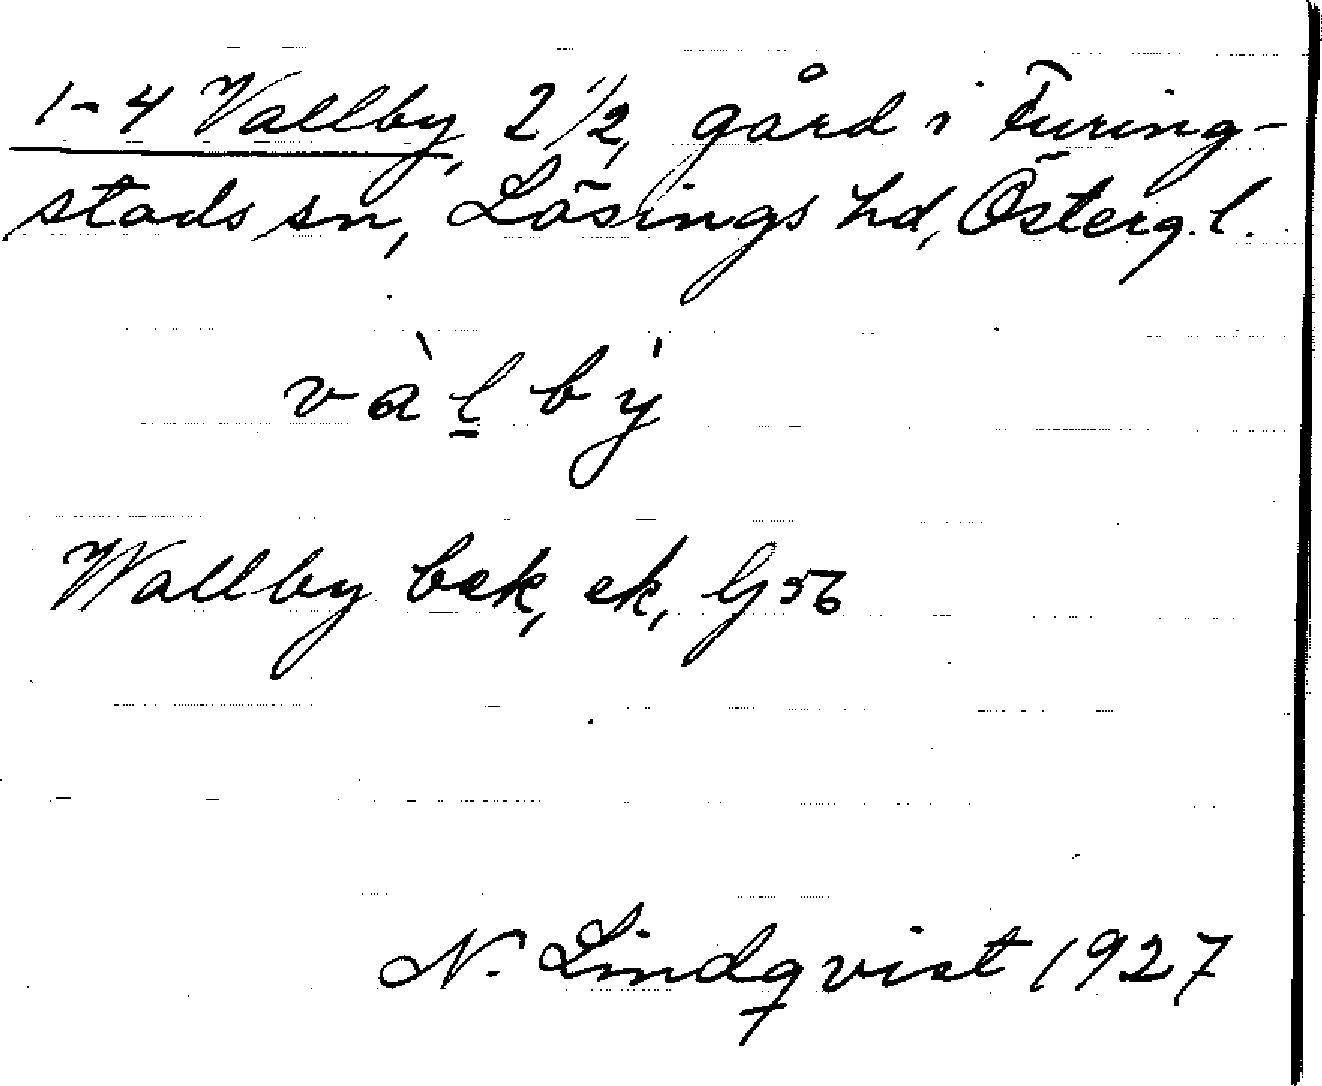 1-4 Vallby, 2 1/2 gård i Furing-
stads sn, Lösings hd, Österg.l.
vàl̲bý
Wallby bek, ek, Gj 56
N. Lindqvist 1927